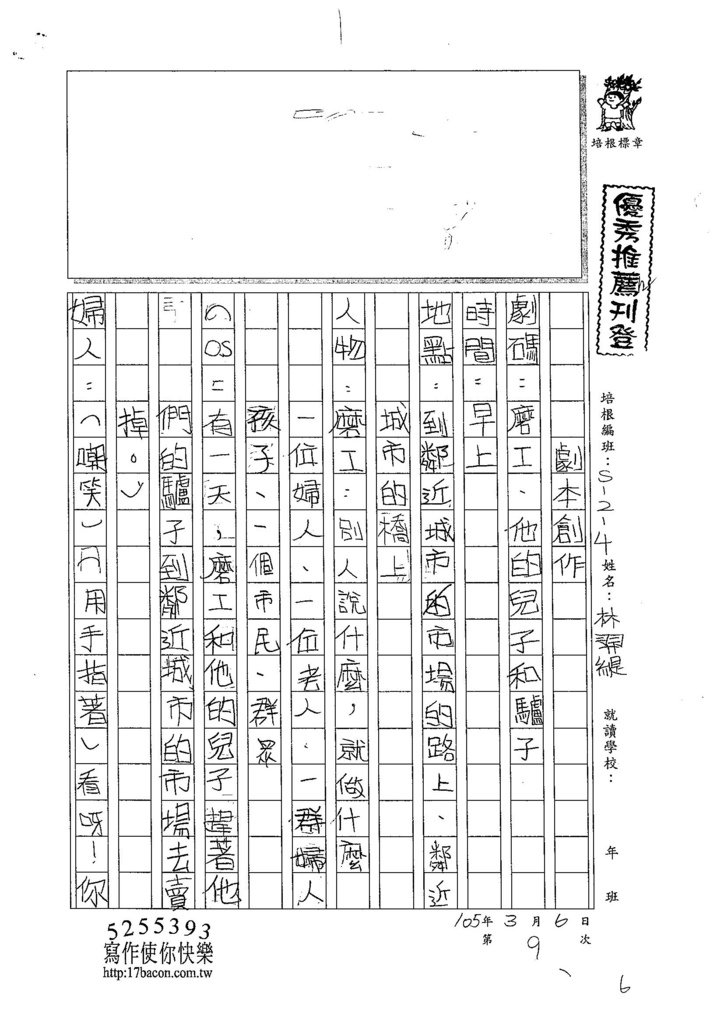 培根標章
優秀推薦刊登
培根編班：S-2-4 姓名：林 緹 就讀學校： 年 班
105年3月6日
第9次
劇本創作
劇碼：磨工、他的兒子和驢子
時間：早上
地點：到鄰近城市的市場的路上、鄰近
城市的橋上
人物：磨工：別人說什麼，就做什麼
一位婦人、一位老人、一群婦人
孩子、一個市民、群眾
（OS：有一天，磨工和他的兒子趕著他
們的驢子到鄰近城市的市場去賣
掉。）
婦人：（嘲笑）（用手指著）看呀！你
5255393
寫作使你快樂
http:17bacon.com.tw
6